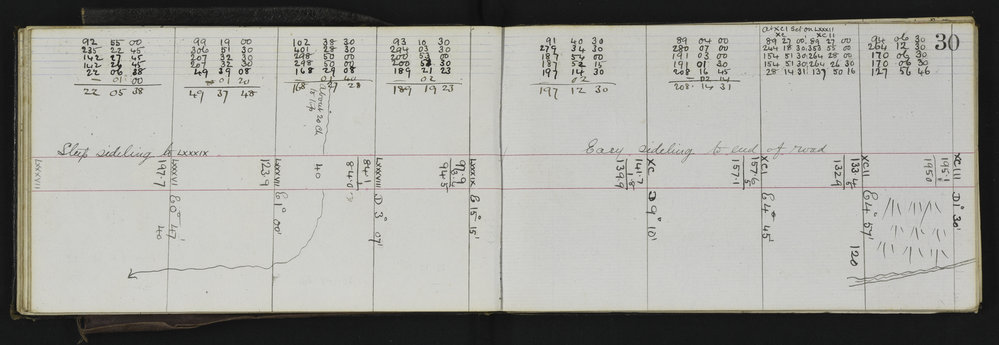 30
92 55 00
235 22 45
142 27 45
142 27 45
22 06 38
— 01 00
22 05 38
99 19 00
306 51 30
207 32 30
207 32 30
49 39 08
01 20
49 37 48
102 38 30
401 28 30
298 50 00
298 50 00
168 29 08
168 27 28
93 10 30
294 03 30
200 53 00
189 21 23
02
189 19 23
91 40 30
279 34 30
187 54 00
197 14 30
02
197 12 30
89 04 00
280 07 00
191 03 00
191 01 30
208 16 45
— 02 14
208. 14 31
At XCI Set on LXXXII
XC XCII
89 27 00 89 27 00
244 18 30 353 55 00
154 51 30 264 28 00
154 51 30 264 26 30
28 14 31 139 50 16
94 06 30
264 12 30
170 06 30
170 06 30
127 56 46
about 20 ch
to Lip
Steep sideling to LXXXIX
Easy sideling to end of road
LXXXVII
197.7
LXXXVII
E 0° 47'
40
123.9
LXXXVIII
E 1° 00'
40
84.1
84.0
LXXXVIII
D 3° 07'
94.5
LXXXIX
E 15° 15'
141.7
1.8
139.9
XC
D 9° 10'
157.6
5
157.1
XCI
E 4° 45'
133.4
5
132.9
XCII
E 4° 57'
120
195.1
195.0
XCIII
D 1° 30'